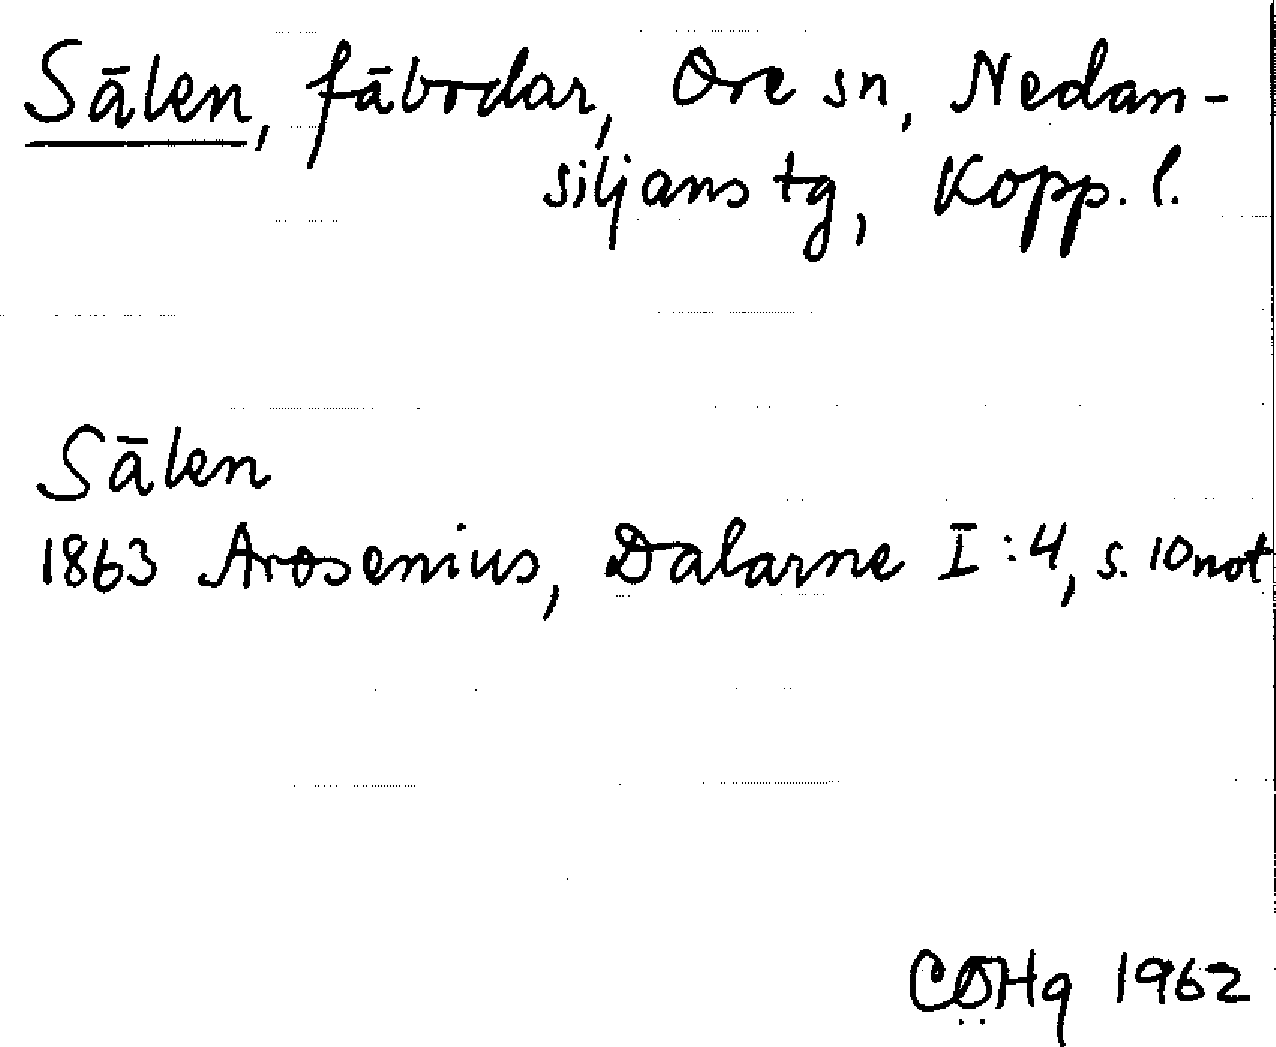 Sälen, fäbodar, Ore sn, Nedan-
siljans tg, Kopp. l.
Sälen
1863 Arosenius, Dalarne I:4, s. 10 not
CÖHg 1962